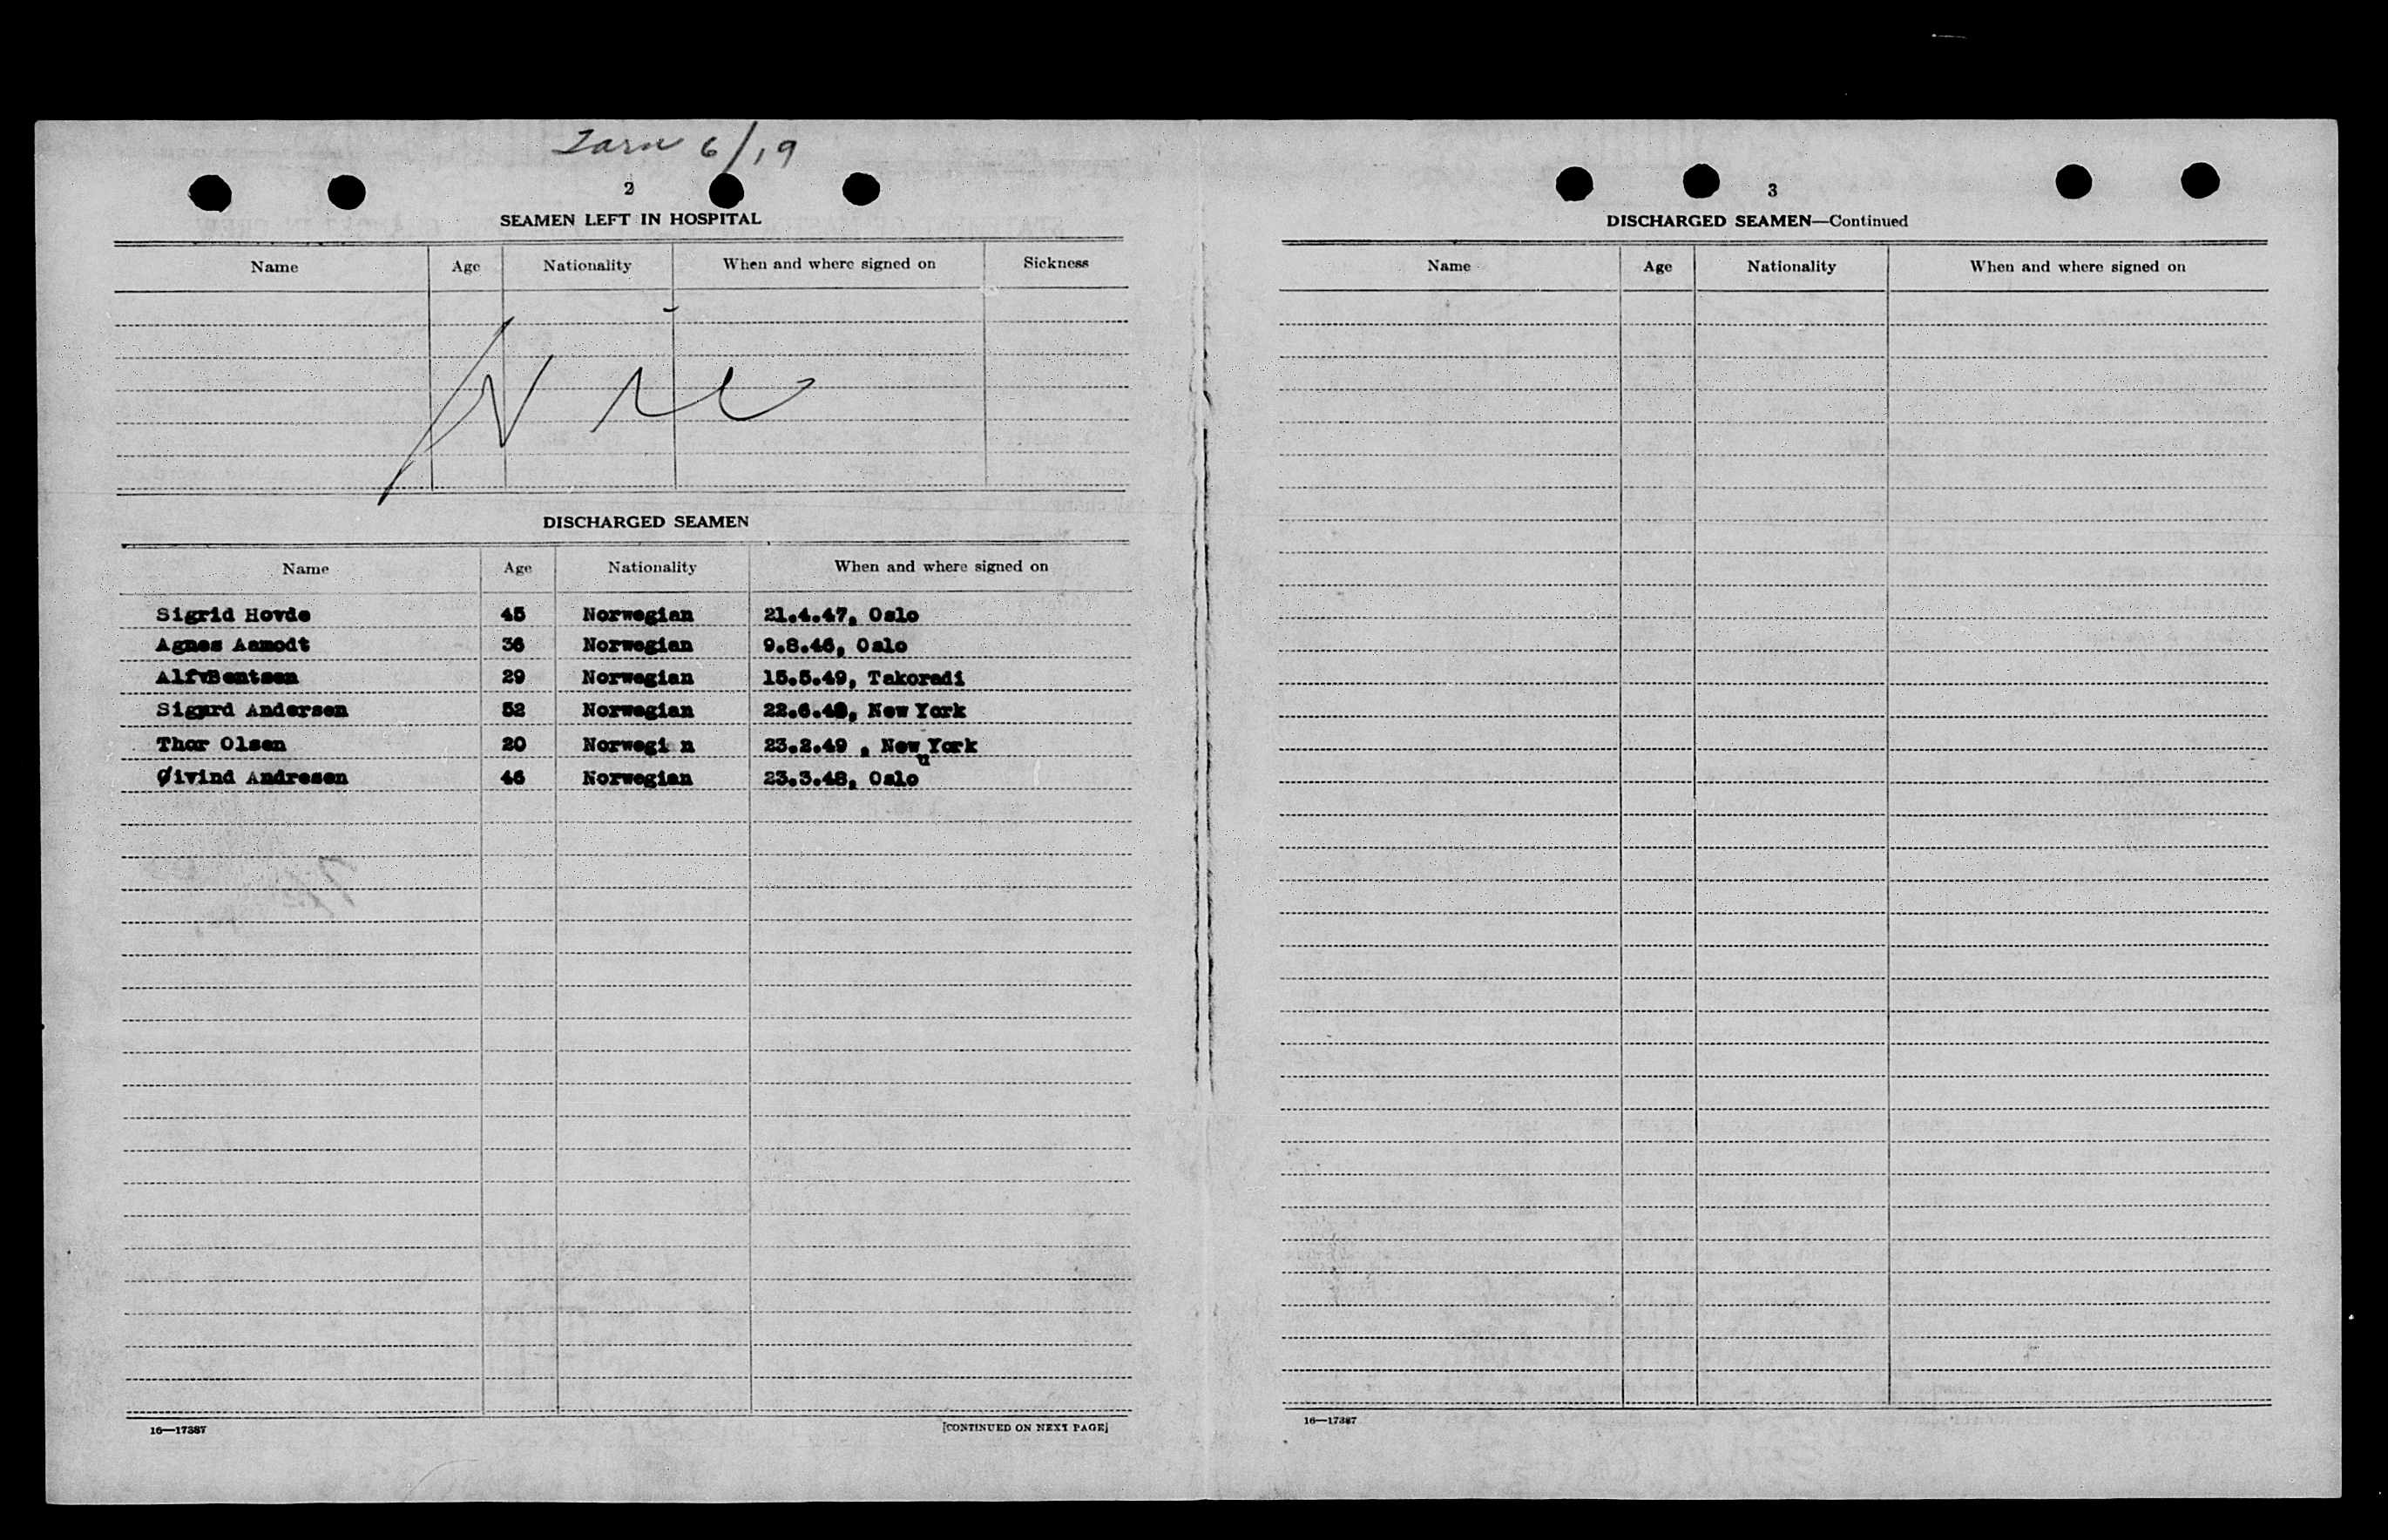 Tarn 6/19
2
SEAMEN LEFT IN HOSPITAL
Name Age Nationality When and where signed on Sickness
Nil
DISCHARGED SEAMEN
Name Age Nationality When and where signed on
Sigrid Hovde 45 Norwegian 21.4.47, Oslo
Agnes Aamodt 36 Norwegian 9.8.46, Oslo
AlfvBentsen 29 Norwegian 15.5.49, Takoradi
Sigurd Andersen 52 Norwegian 22.6.48, New York
Thor Olsen 20 Norwegi n 23.2.49 , New York
Øivind Andresen 46 Norwegian 23.3.48, Oslo
16—17387
[CONTINUED ON NEXT PAGE]
3
DISCHARGED SEAMEN—Continued
Name Age Nationality When and where signed on
16—17387